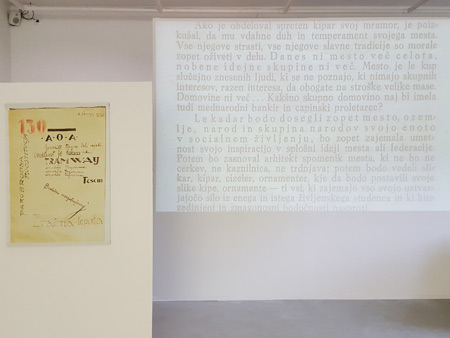 150
A·O·A
TRAMWAY
Tescm
Ako je obdeloval spreten kipar svoj mramor, je poiz-
kušal, da mu vdahne duh in temperament svojega mesta.
Vse njegove strasti, vse njegove slavne tradicije so morale
zopet oživeti v delu. Danes ni mesto več celota,
nobene idejne skupine ni več. Mesto je le kup
slučajno znesenih ljudi, ki se ne poznajo, ki nimajo skupnih
interesov, razen interesa, da obogate na stroške velike mase.
Domovine ni več . . Kakšno skupno domovino naj bi imela
tudi mednarodni bankir in capinski proletarec?
Le kadar bodo dosegli zopet mesto, ozem-
lje, narod in skupina narodov svojo enoto
v socialnem življenju, bo zopet zajemala umet-
nost svojo inspiracijo v splošni ideji mesta ali federacije.
Potem bo zasnoval arhitekt spomenik mesta, ki ne bo ne
cerkev, ne kaznilnica, ne trdnjava; potem bodo vedeli sli-
kar, kipar, cizeler, ornamenter, kje da bodo postavili svoje
slike kipe, ornamente — ti vsi, ki zajemajo vso svojo ustvar-
jajočo silo iz enega in istega življenskega studenca in ki